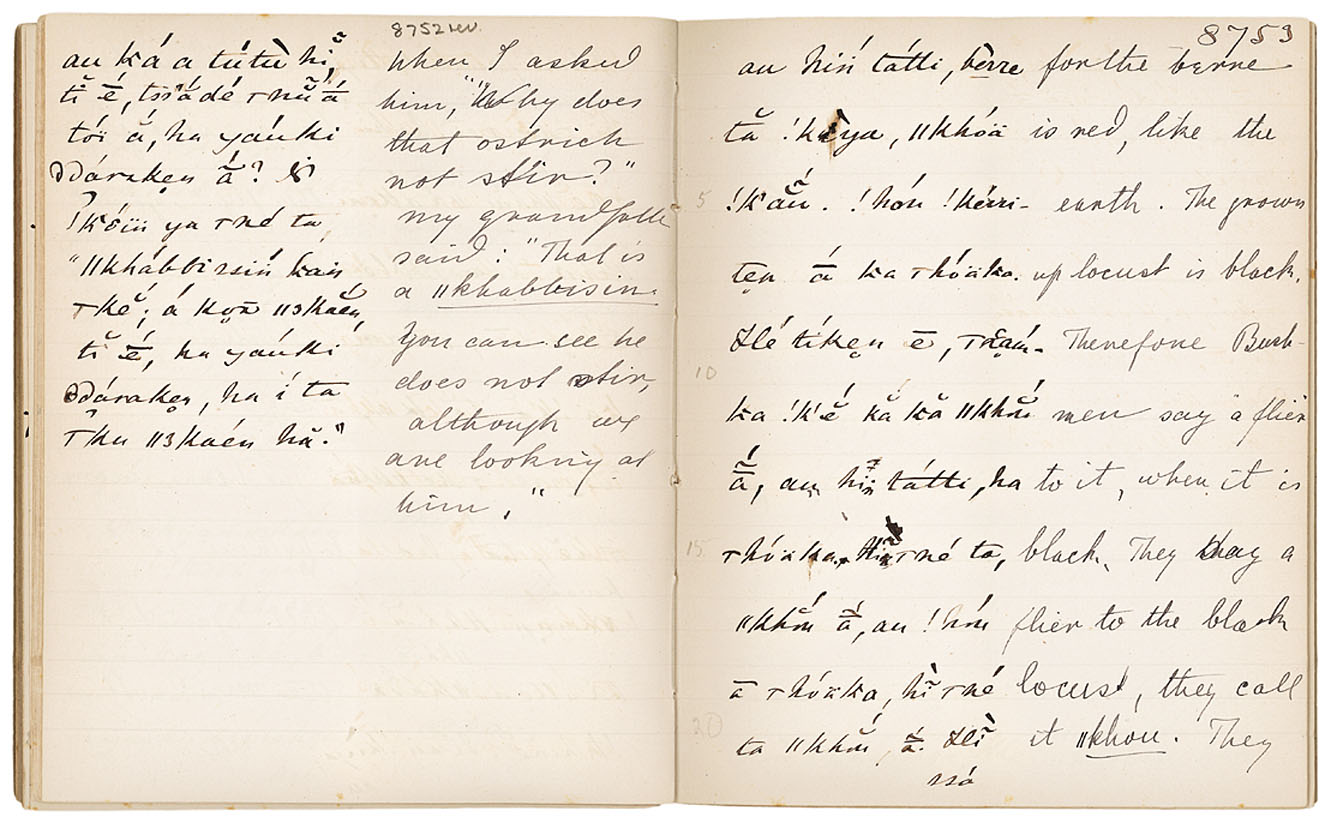 8752 rev.
au ká a tútù hĩ
tĭ ē, tss̈ádé ꞇnŭ á
tóï ắ, ha yaúki
ʘdáraken ắ?
!kóïñ ya ꞇné ta
"ǁkhábbi ssiń kaṅ
ꞇké; á koā ǁɜkaén,
tĭ ē, ha yaúki
ʘdáraken, ha í ta
ꞇku ǁɜkaén hă."
when I asked
him, "Why does
that ostrich
not stir?"
my grandfath
said: "That is
a ǁkhabbisin.
You can see he
does not stir,
although we
are looking at
him."
8753
au hiń tátti, bèrre for the berre
tā !kuya, ǁkhóä is red, like the
5
!kaŭ. !hóu !kérri- earth. The grown
ten ắ ka ꞇhóäka. up locust is black.
Hé tíken ē, Therefore Bush-
10
ka !k'ĕ kă kă ǁkhóu men say a flier
ā, au hiṅ tátti, ha to it, when it is
15
ꞇhóäka. Hĭ ꞇné ta, black. They say a
ǁkhóu ā, au !hóu flier to the black
ā ꞇhóäka, hĭ ꞇné locust, they call
20
ta ǁkhóu ā. Hĭ it ǁkhou. They
ssá